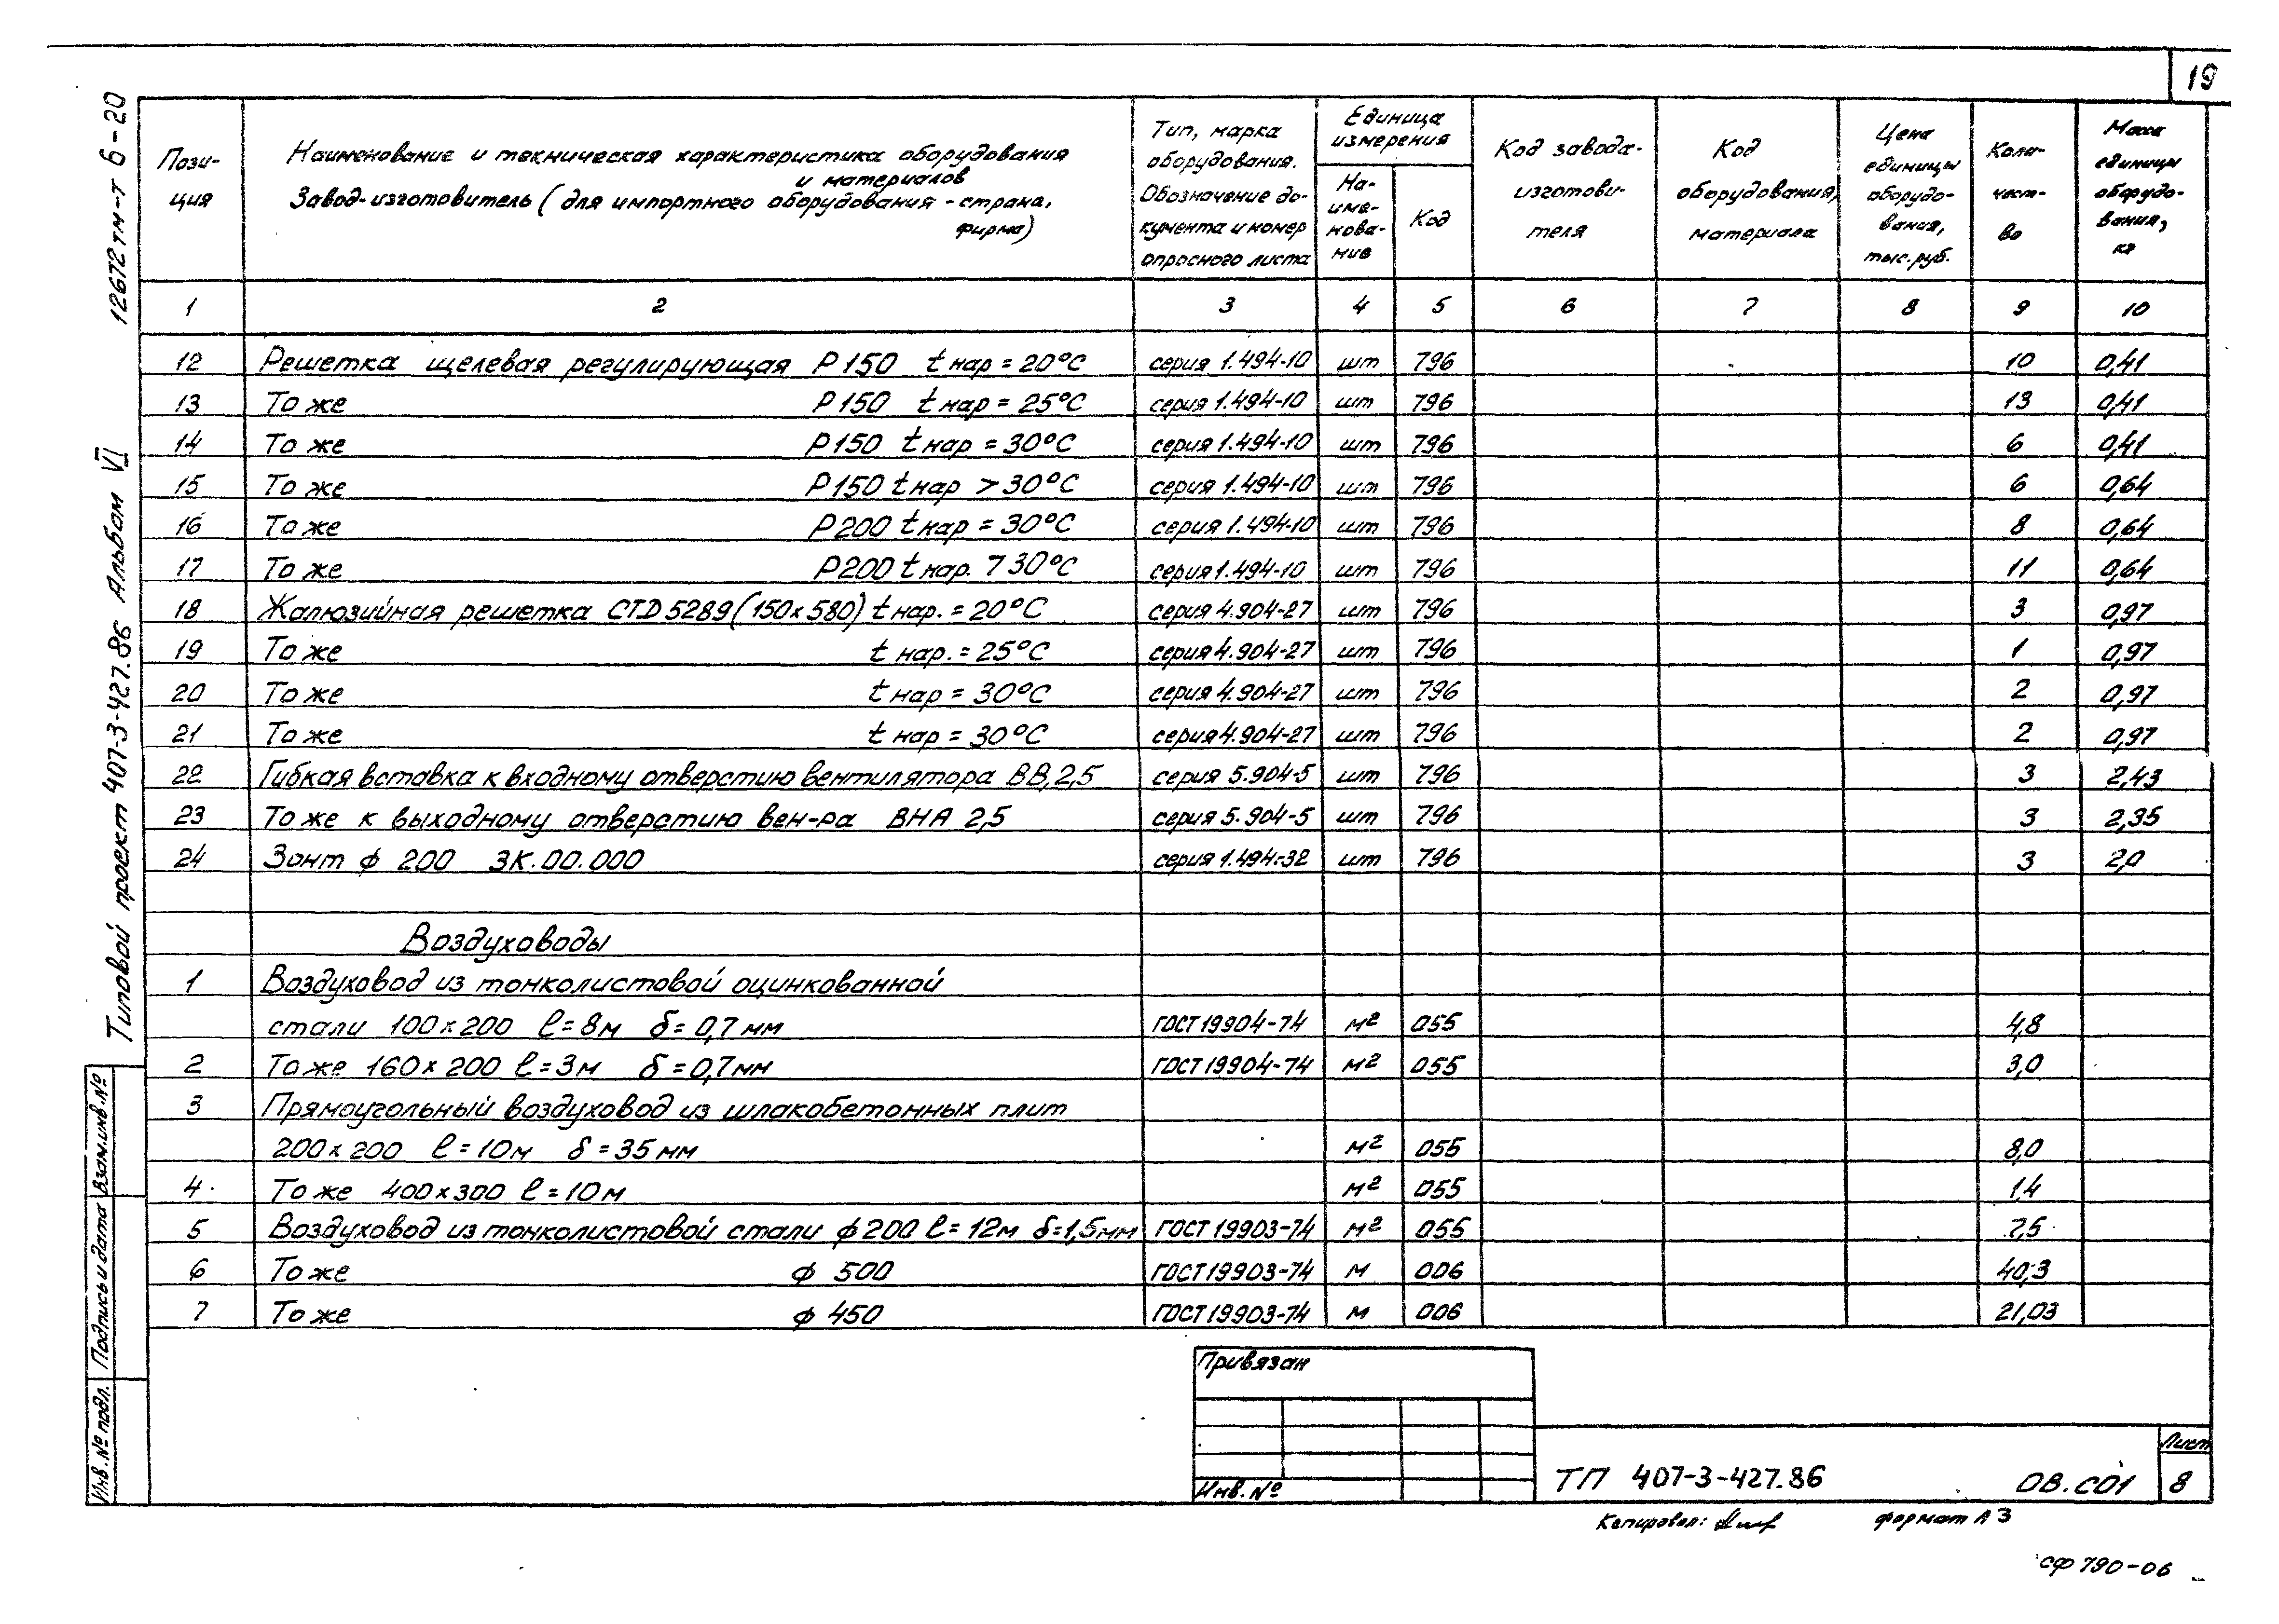 19
Пози-
ция
Наименование и техническая характеристика оборудования
и материалов
Завод-изготовитель (для импортного оборудования - страна,
фирма)
Тип, марка
оборудования.
Обозначение до-
кумента и номер
опросного листа
Единица
измерения
На-
име-
нова-
ние
Код
Код завода-
изготови-
теля
Код
оборудования,
материала
Цена
единицы
оборудо-
вания,
тыс. руб.
Коли-
чест-
во
Масса
единицы
оборудо-
вания,
кг
1 2 3 4 5 6 7 8 9 10
12 Решетка щелевая регулирующая Р150 t нар = 20°С серия 1.494-10 шт 796 10 0,41
13 То же Р150 t нар = 25°С серия 1.494-10 шт 796 13 0,41
14 То же Р150 t нар = 30°С серия 1.494-10 шт 796 6 0,41
15 То же Р150 t нар > 30°С серия 1.494-10 шт 796 6 0,64
16 То же Р200 t нар = 30°С серия 1.494-10 шт 796 8 0,64
17 То же Р200 t нар. 7 30°С серия 1.494-10 шт 796 11 0,64
18 Жалюзийная решетка СТД 5289 (150х580) t нар. = 20°С серия 4.904-27 шт 796 3 0,97
19 То же t нар. = 25°С серия 4.904-27 шт 796 1 0,97
20 То же t нар = 30°С серия 4.904-27 шт 796 2 0,97
21 То же t нар = 30°С серия 4.904-27 шт 796 2 0,97
22 Гибкая вставка к входному отверстию вентилятора ВВ,2,5 серия 5.904-5 шт 796 3 2,43
23 То же к выходному отверстию вен-ра ВНА 2,5 серия 5.904-5 шт 796 3 2,35
24 Зонт ф 200 ЗК.00.000 серия 1.494-32 шт 796 3 2,0
Воздуховоды
1 Воздуховод из тонколистовой оцинкованной
стали 100х200 ℓ=8м δ=0,7мм ГОСТ 19904-74 м² 055 4,8
2 То же 160х200 ℓ=3м δ=0,7мм ГОСТ 19904-74 м² 055 3,0
3 Прямоугольный воздуховод из шлакобетонных плит
200х200 ℓ=10м δ=35мм м² 055 8,0
4 То же 400х300 ℓ=10м м² 055 14
5 Воздуховод из тонколистовой стали ф200 ℓ=12м δ=1,5мм ГОСТ 19903-74 м² 055 7,5
6 То же ф 500 ГОСТ 19903-74 м 006 40,3
7 То же ф 450 ГОСТ 19903-74 м 006 21,03
Привязан
Инв. №
ТП 407-3-427.86 ОВ.СО1
Лист
8
Копировал:
формат А3
СФ 790-06
12672тм-т 6-20
Типовой проект 407-3-427.86 Альбом VI
Взам.инв.№
Подпись и дата
Инв.№ подл.